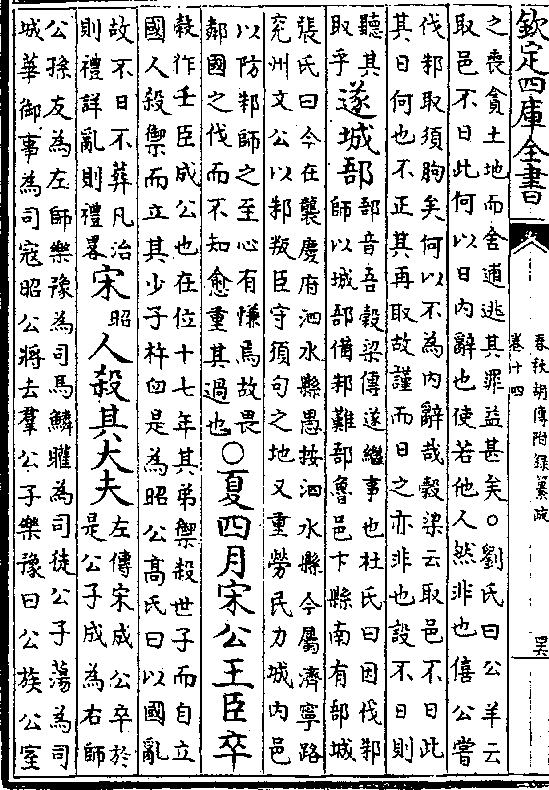 欽定四庫全書
春秋胡傳附録纂疏
卷十四
之喪貪土地而舍逋逃其罪益甚矣○劉氏曰公羊云
取邑不日此何以日内辭也使若他人然非也僖公嘗
伐邾取須朐矣何以不為内辭哉穀梁云取邑不日此
其日何也不正其再取故謹而日之亦非也設不日則
聽其
取乎
遂城郚
郚音吾穀梁傳遂繼事也杜氏曰因伐邾
師以城郚備邾難郚魯邑卞縣南有郚城
張氏曰今在襲慶府泗水縣愚按泗水縣今屬濟寧路
兖州文公以邾叛臣守須句之地又重勞民力城内邑
以防邾師之至心有慊焉故畏
鄰國之伐而不知愈重其過也
○夏四月宋公王臣卒
穀作壬臣成公也在位十七年其弟禦殺世子而自立
國人殺禦而立其少子杵臼是為昭公髙氏曰以國亂
故不日不葬凡治
則禮詳亂則禮畧
宋
昭
人殺其大夫
左傳宋成公卒於
是公子成為右師
公孫友為左師樂豫為司馬鱗矔為司徒公子蕩為司
城華御事為司寇昭公將去羣公子樂豫曰公族公室